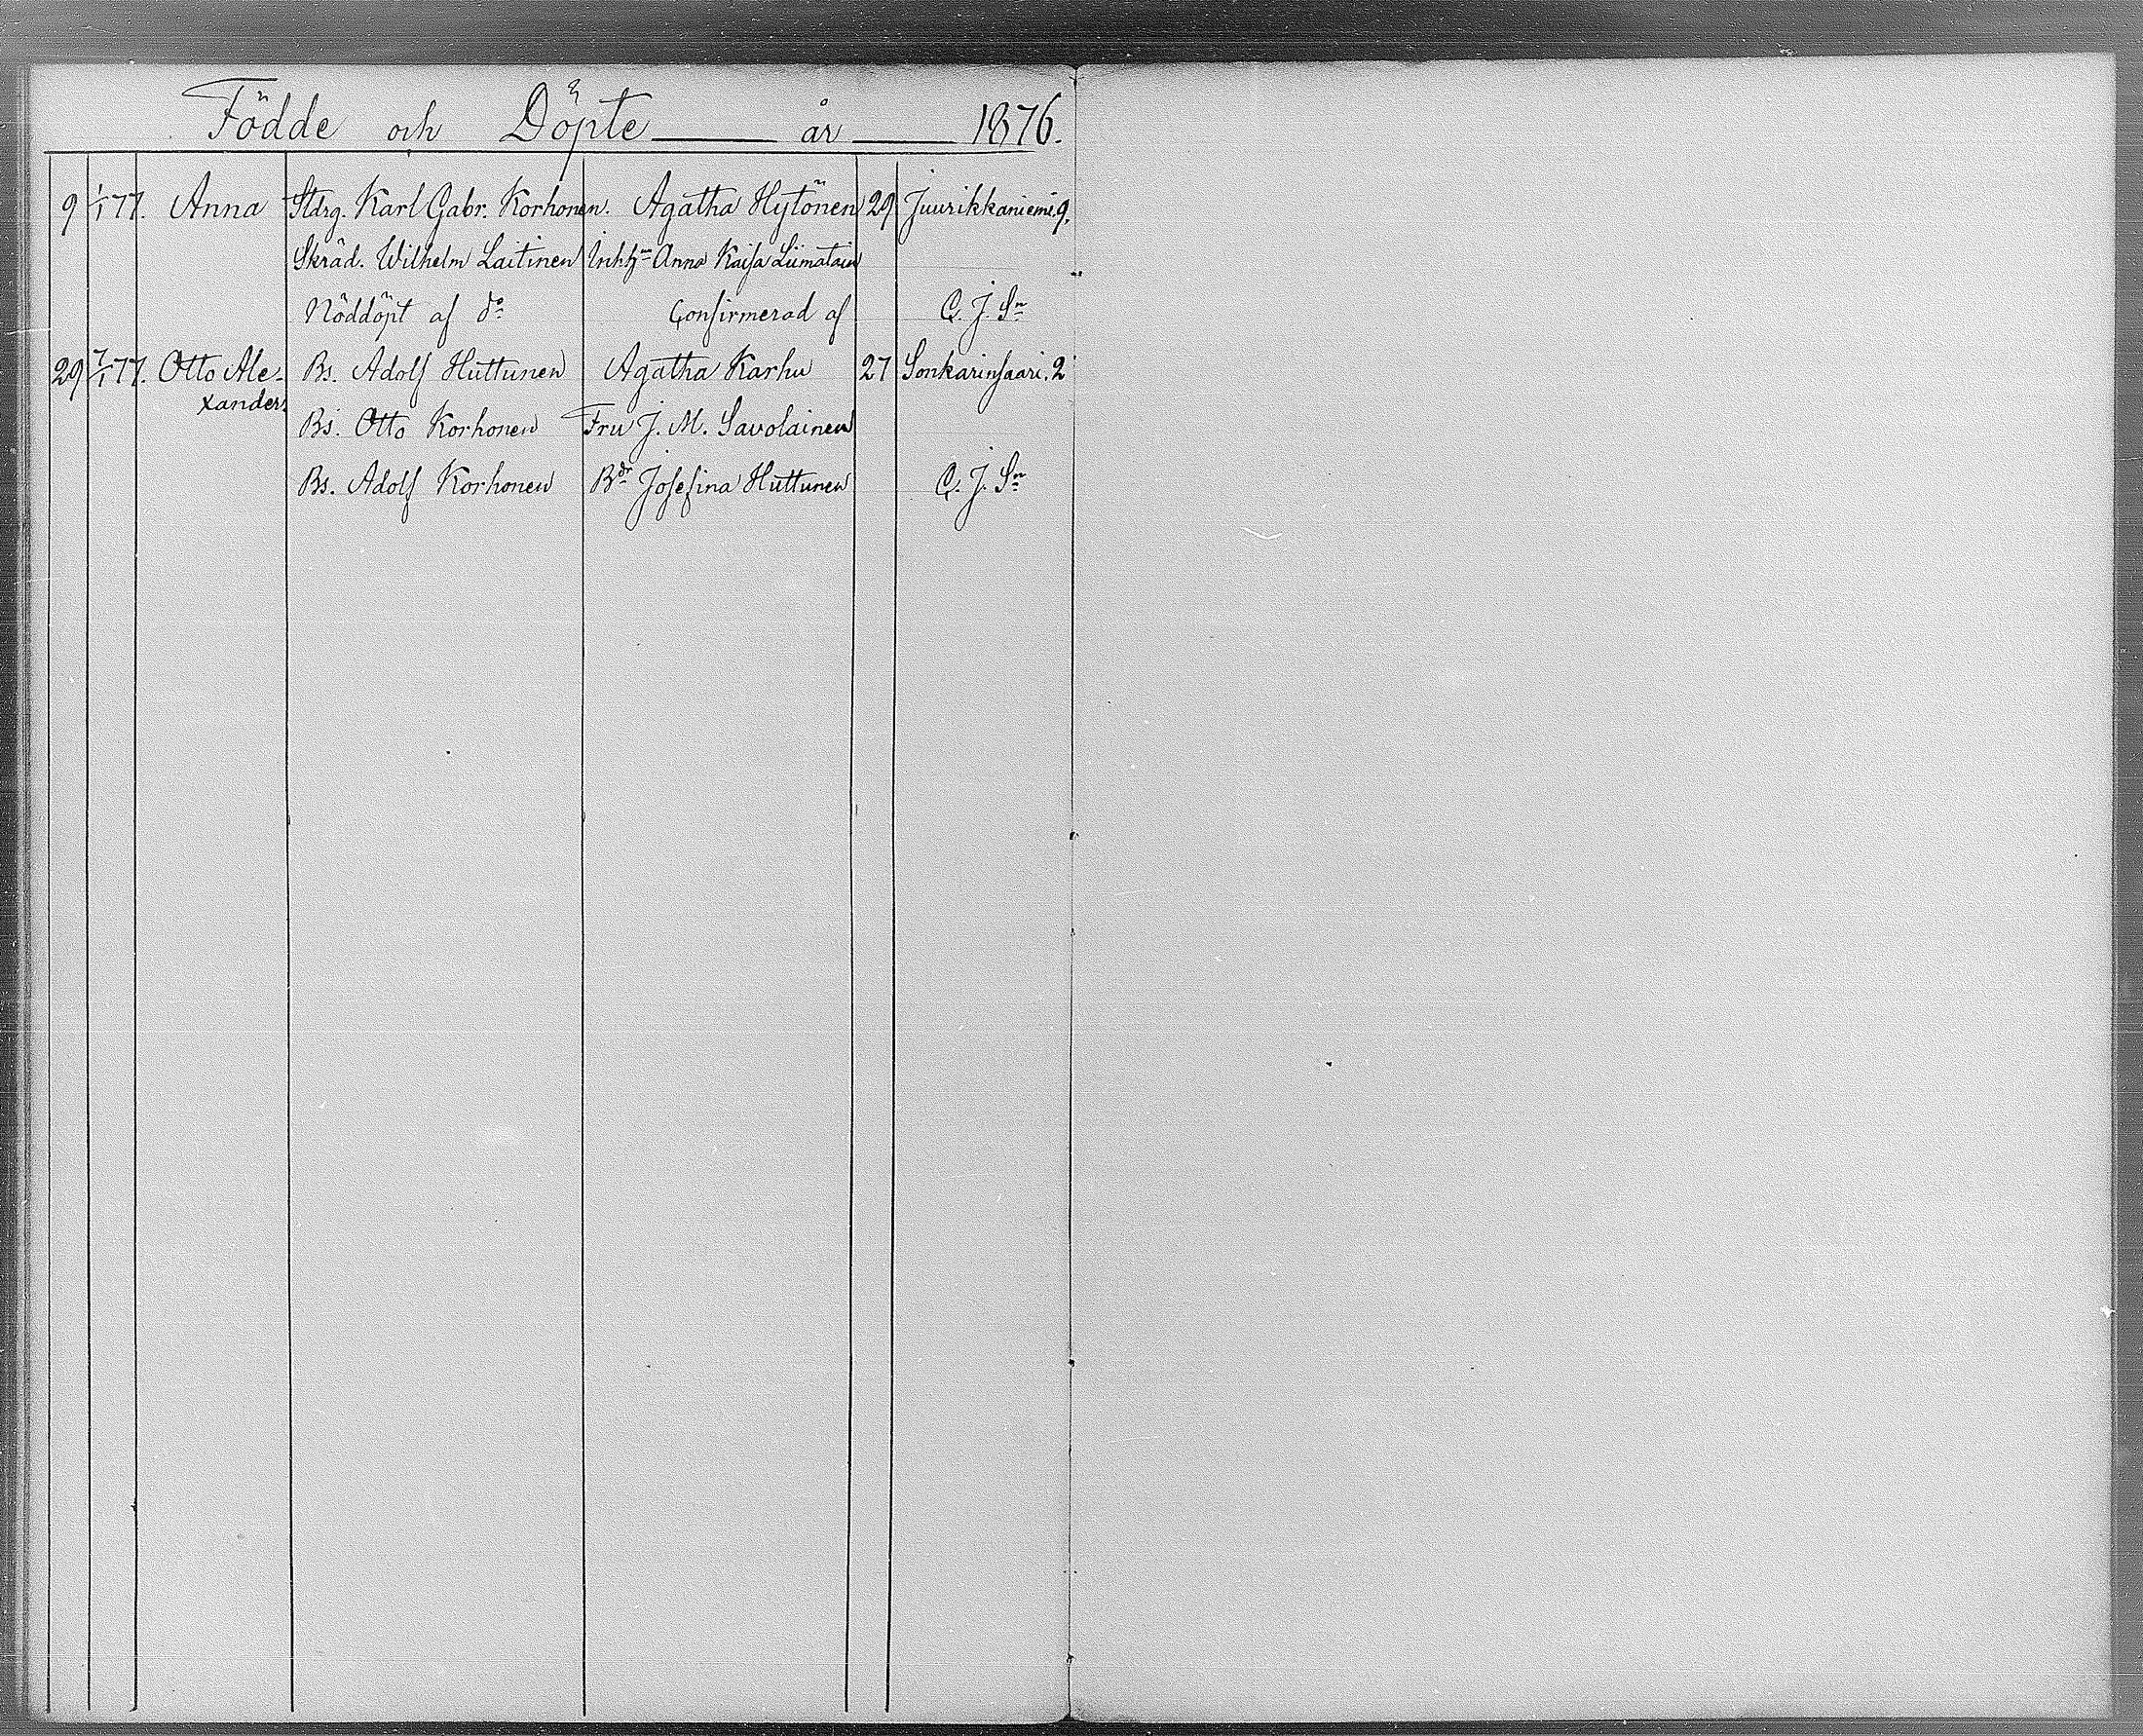 Födde och Döpte år 1876.
9 1/1 77. Anna Stdrg. Karl Gabr. Korhonen. Agatha Hytönen 29 Juurikkaniemi. 9.
Skräd. Wilhelm Laitinen Inhhn Anna Kaisa Liimatain
Nöddöpt af do Confirmerad af C. J. Sn
29 7/1 77. Otto Ale- Bs. Adolf Huttunen Agatha Karhu 27 Sonkarinsaari. 2
xander.
Bs. Otto Korhonen Fru J. M. Savolainen
Bs. Adolf Korhonen Bdr Josefina Huttunen C. J. Sn